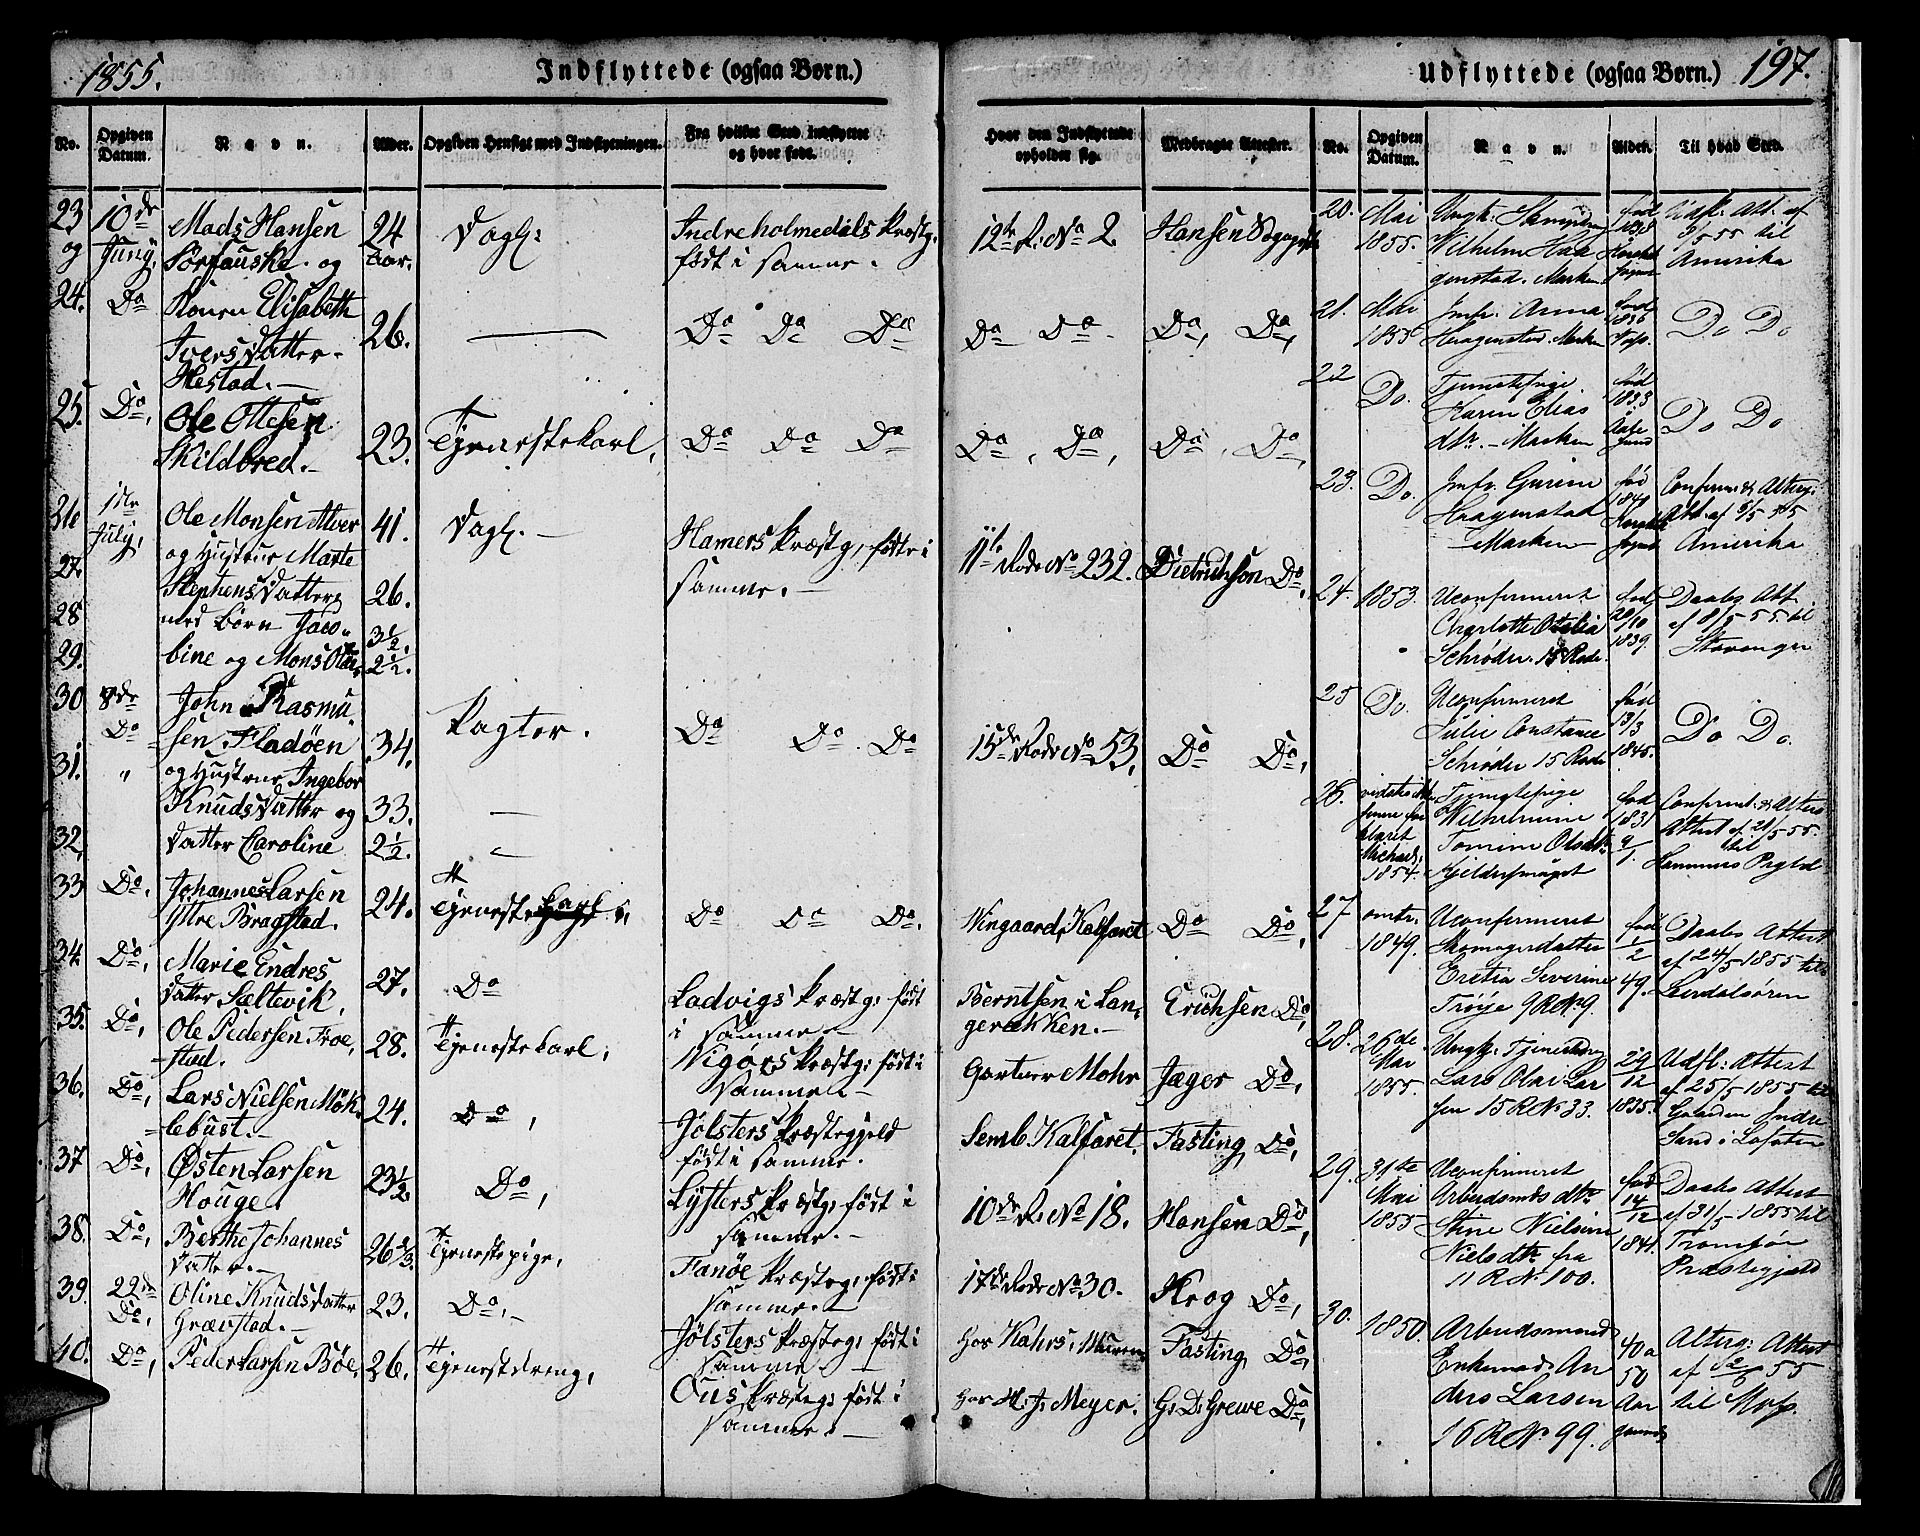 1855.
Indflyttede (ogsaa Børn.)
No.
Opgiven Datum.
Navn.
Alder.
Opgiven Hensigt med Indflytningen.
Fra hvilket Sted Indflyttet og hvor født.
Hvor den Indflyttede opholder sig.
Medbragte Attester.
23 10de Mads Hansen 24 Dagl: Indreholmedals Præstg. 12te R. No 2. Hansen
og Juny, Sørfauske og Aar. født i samme.
24. Do Konen Elisabeth
Ivers Datter 26. Do Do Do Do Do Do, Do,
Hestad.
25. Do, Ole Ottesen
Skildbred. 23. Tjenestekarl, Do Do Do Do, Do, Do, Do,
1ste Ole Monsen Alver 41. Dagl. Hamers Præstg, fødte i
July, og Hustrue Marte samme. 11te Rode No 232. Dietrichson Do,
27. Stephens Datter 26.
28 med Børn Jaco- 3½.
29. bine og Mons 2½.
30 8de John Rasmu-
Do sen Fladøen 34. Pagter. Do Do Do 15de Rode No 53, Do Do,
31. " og Hustrue Ingebor
Knuds Datter og 33.
32. Datter Caroline 2½.
33 Do, Johannes Larsen 24. Tjeneste
Ytre Bragstad. Do Do Do. Wingaard, Kalfaret Do Do,
34. Do, Marie Endres 27. Do Ladvigs Præstg: født Berntsen i Lan- Erichsen Do,
Datter Sæltevik, i samme gerækken.
35. Do, Ole Pedersen Froe, 28. Tjenestekarl,
stad. Præstg: født i samme Gartner Mohr Jæger Do,
36. Do, Lars Nielsen Møk- 24. Do, Jølsters Præstegjeld Semb. Kalfaret. Fasting, Do,
lebust. født i samme.
37 Do, Østen Larsen 23½. Do, Lysters Præstg, født i 10de R. No 18. Hansen Do,
Houge samme.
38. Do, Berthe Johannes 26 Tjenestepige, Fanøe Præsteg, født i 17de Rode No 30. Krog Do,
Datter. samme.
39. 22de Oline Knuds Datter 23. Do, Jølsters Præsteg, født i Hos Kahrs, Fasting, Do,
Do, Grævstad. samme
40. Do, Peder Larsen Bøe, 26. Tjenestdreng, Ous Præsteg: født i Hos H. J. Meyer. G. D. Grewe Do,
samme.
Udflyttede (ogsaa Børn.) 197.
No.
Opgiven Datum.
Navn.
Alder.
Til hvad Sted.
20. Mai Ungk: født Udfl. Att. af
1855. Wilhelm Haa til
genstad. Marken Amerika
21. Mai Jmfr. Anna født
1855 Haagenstad. Marken 1836 Do Do
22 Do. Tjenestepige født
Karen Elias 1833 Do Do
dtr. Marken
23. Do. Jmfr. Gurine fød Confirm: & Alterg:
Haagenstad 1841 Att. af
Marken Amerika
24. 1853 Uconfirmeret født Daabs Att
Charlotte 20/10 af 8/5 55 til
Schrøder. 15 Rode. 1839. Stavanger
25 Do. Uconfirmeret født
Julie Constance 13/3 Do Do.
Schrøder 15 Rode 1845.
26. Tjenestepige født Confirmt: & Alterg
Wilhelmine 1831 Attest af 21/5 55.
Michaeli Tomine Olsdtr. 9/1. til
1854. Hammers Prgld
27 omtr. Uconfirmeret født Daabs Attest
1849. Skomagerdatter 1/2 af 24/5 1855 til
Severine 49. Leerdalsøren
Trøje 9 R No 9.
28. 26de Ungk: 29 Udfl: Attest
Mai Lars Olai Lar 12 af 25/5 1855 til
1855. sen 15 R No 33. 1835. Gaarden Indre
Sund i Lofoten
29. 31te Uconfirmeret født Daabs Attest
Mai Arbeidsmds dtr. 14/12 af 31/5 1855 til
1855 Stine Nielsine 1841. Tromsøe
Nielsdtr. fra Præstegjeld
11 R No 100.
30. 1850. Arbeidsmand 40 a Alterg: Attest
Enkemand An 50 af 55
ders Larsen Aar til
16 R No 99. gammel